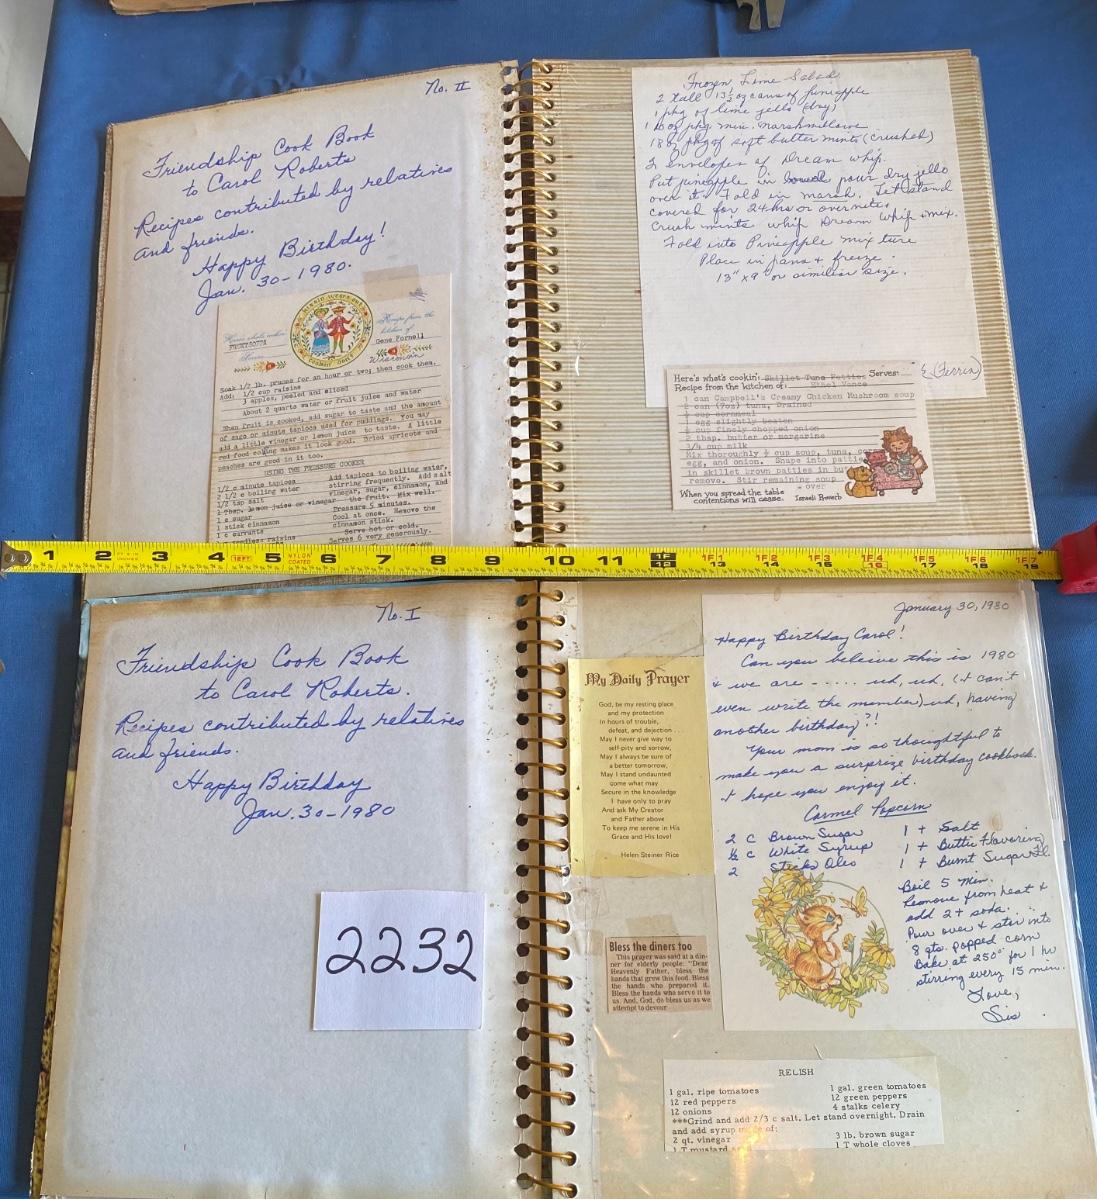 No. II
Friendship Cook Book
to Carol Roberts
Recipes contributed by relatives
and friends.
Happy Birthday!
Jan. 30-1980.
Here's what's cookin
Recipe from the
kitchen of
Gene Pornell
Wisconsin
Serves
Soak 1/2 lb. prunes for an hour or two; then cook them.
Add: 1/2 cup raisins
3 apples, peeled and sliced
About 2 quarts water or fruit juice and water
When fruit is cooked, add sugar to taste and the amount
of sago or minute tapioca used for puddings. You may
add a little vinegar or lemon juice to taste. A little
red food coloring makes it look good. Dried apricots and
peaches are good in it too.
USING THE PRESSURE COOKER
1/2 c minute tapioca Add tapioca to boiling water,
2 1/2 c boiling water stirring frequently. Add salt
1/2 tsp salt vinegar, sugar, cinnamon, and
1 Tbsp. lemon juice or vinegar the fruit. Mix well.
1 c sugar Pressure 5 minutes.
1 stick cinnamon Cool at once. Remove the
1 c currants cinnamon stick.
raisins Serve hot or cold.
Serves 6 very generously.
Frozen Lime Salad
2 tall 13½ oz cans of pineapple
1 pkg of lime jello (dry)
1 10 oz pkg. mini. marshmallows
1 8oz pkg of soft butter mints (crushed)
2 envelopes of Dream whip.
Put pineapple in bowl pour dry jello
over it. Fold in marsh. Let stand
covered for 24 hrs or overnite.
Crush mints whip Dream Whip + mix.
Fold into Pineapple mixture
Place in pans + freeze.
13" x 9" or similiar size.
Here's what's cookin': Skillet Tuna Patties Serves:
(Perrin)
Recipe from the kitchen of: Ethel Vance
1 can Campbell's Creamy Chicken Mushroom soup
2 can (7oz) tuna, Drained
cup cornmeal
1 egg slightly beaten
cup finely chopped onion
2 tbsp. butter or margarine
3/4 cup milk
Mix thoroughly ½ cup soup, tuna,
egg, and onion. Shape into patties
in skillet brown patties in bu
remove. Stir remaining soup
over
When you spread the table
contentions will cease.
Israeli Proverb
1 2 3 4 5 6 7 8 9 10 11 1F 12 1F1 13 1F2 14 1F3 15 1F4 16 1F5 17 1F6 18 1F7 19
NYLON
COATED
No. I
Friendship Cook Book
to Carol Roberts.
Recipes contributed by relatives
and friends.
Happy Birthday
Jan. 30-1980
2232
My Daily Prayer
God, be my resting place
and my protection
In hours of trouble,
defeat, and dejection...
May I never give way to
self-pity and sorrow,
May I always be sure of
a better tomorrow,
May I stand undaunted
come what may
Secure in the knowledge
I have only to pray
And ask My Creator
and Father above
To keep me serene in His
Grace and His love!
Helen Steiner Rice
Bless the diners too
This prayer was said at a din-
ner for elderly people: "Dear
Heavenly Father, bless the
hands that grew this food. Bless
the hands who prepared it.
Bless the hands who serve it to
us. And, God, do bless us as we
attempt to devour
January 30, 1980
Happy Birthday Carol!
Can you beleive this is 1980
& we are ----- uh, uh, (I can't
even write the number) uh, having
another birthday?!
Your mom is so thoughtful to
make you a surprize birthday cookbook.
I hope you enjoy it.
Carmel Popcorn
2 c Brown Sugar 1 t Salt
½ c White Syrup 1 t Buttr Flavoring
2 Sticks Oleo 1 t Burnt Sugar Fl.
Boil 5 min.
Remove from heat &
add 2 t soda.
Pour over & stir into
8 qts. popped corn
Bake at 250° for 1 hr
stirring every 15 min.
Love,
Sis
RELISH
1 gal. ripe tomatoes 1 gal. green tomatoes
12 red peppers 12 green peppers
12 onions 4 stalks celery
***Grind and add 2/3 c salt. Let stand overnight. Drain
and add syrup made of:
2 qt. vinegar 3 lb. brown sugar
1 T mustard 1 T whole cloves